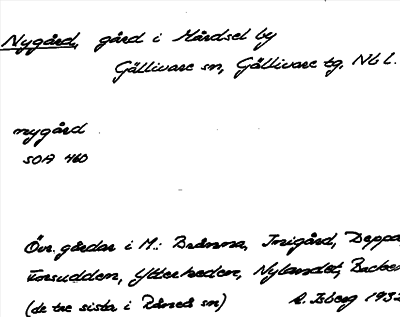 Nygård, gård i Mårdsel by
Gällivare sn, Gällivare tg, Nb l.
nygård
SOA 460
Övr. gårdar i M.: Brännna, Inigård, Deppa,
Forsudden, Ytterheden, Nylandet, Backen
(de tre sista i Råneå sn) A. Isberg 1932